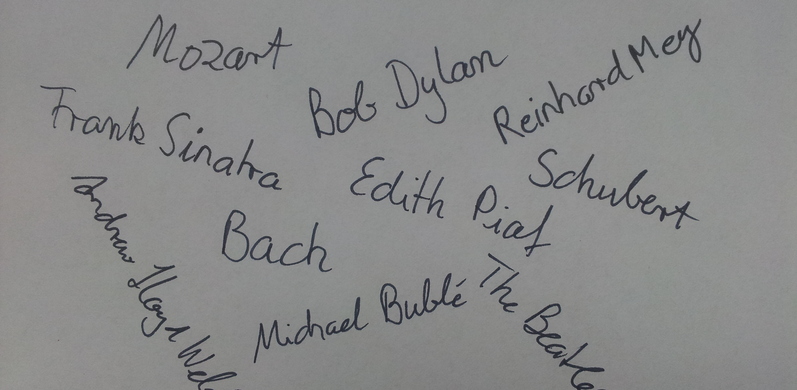 Mozart
Bob Dylan
Reinhard Mey
Frank Sinatra
Edith Piaf
Schubert
Bach
Andrew Lloyd Web
Michael Bublé
The Beatle